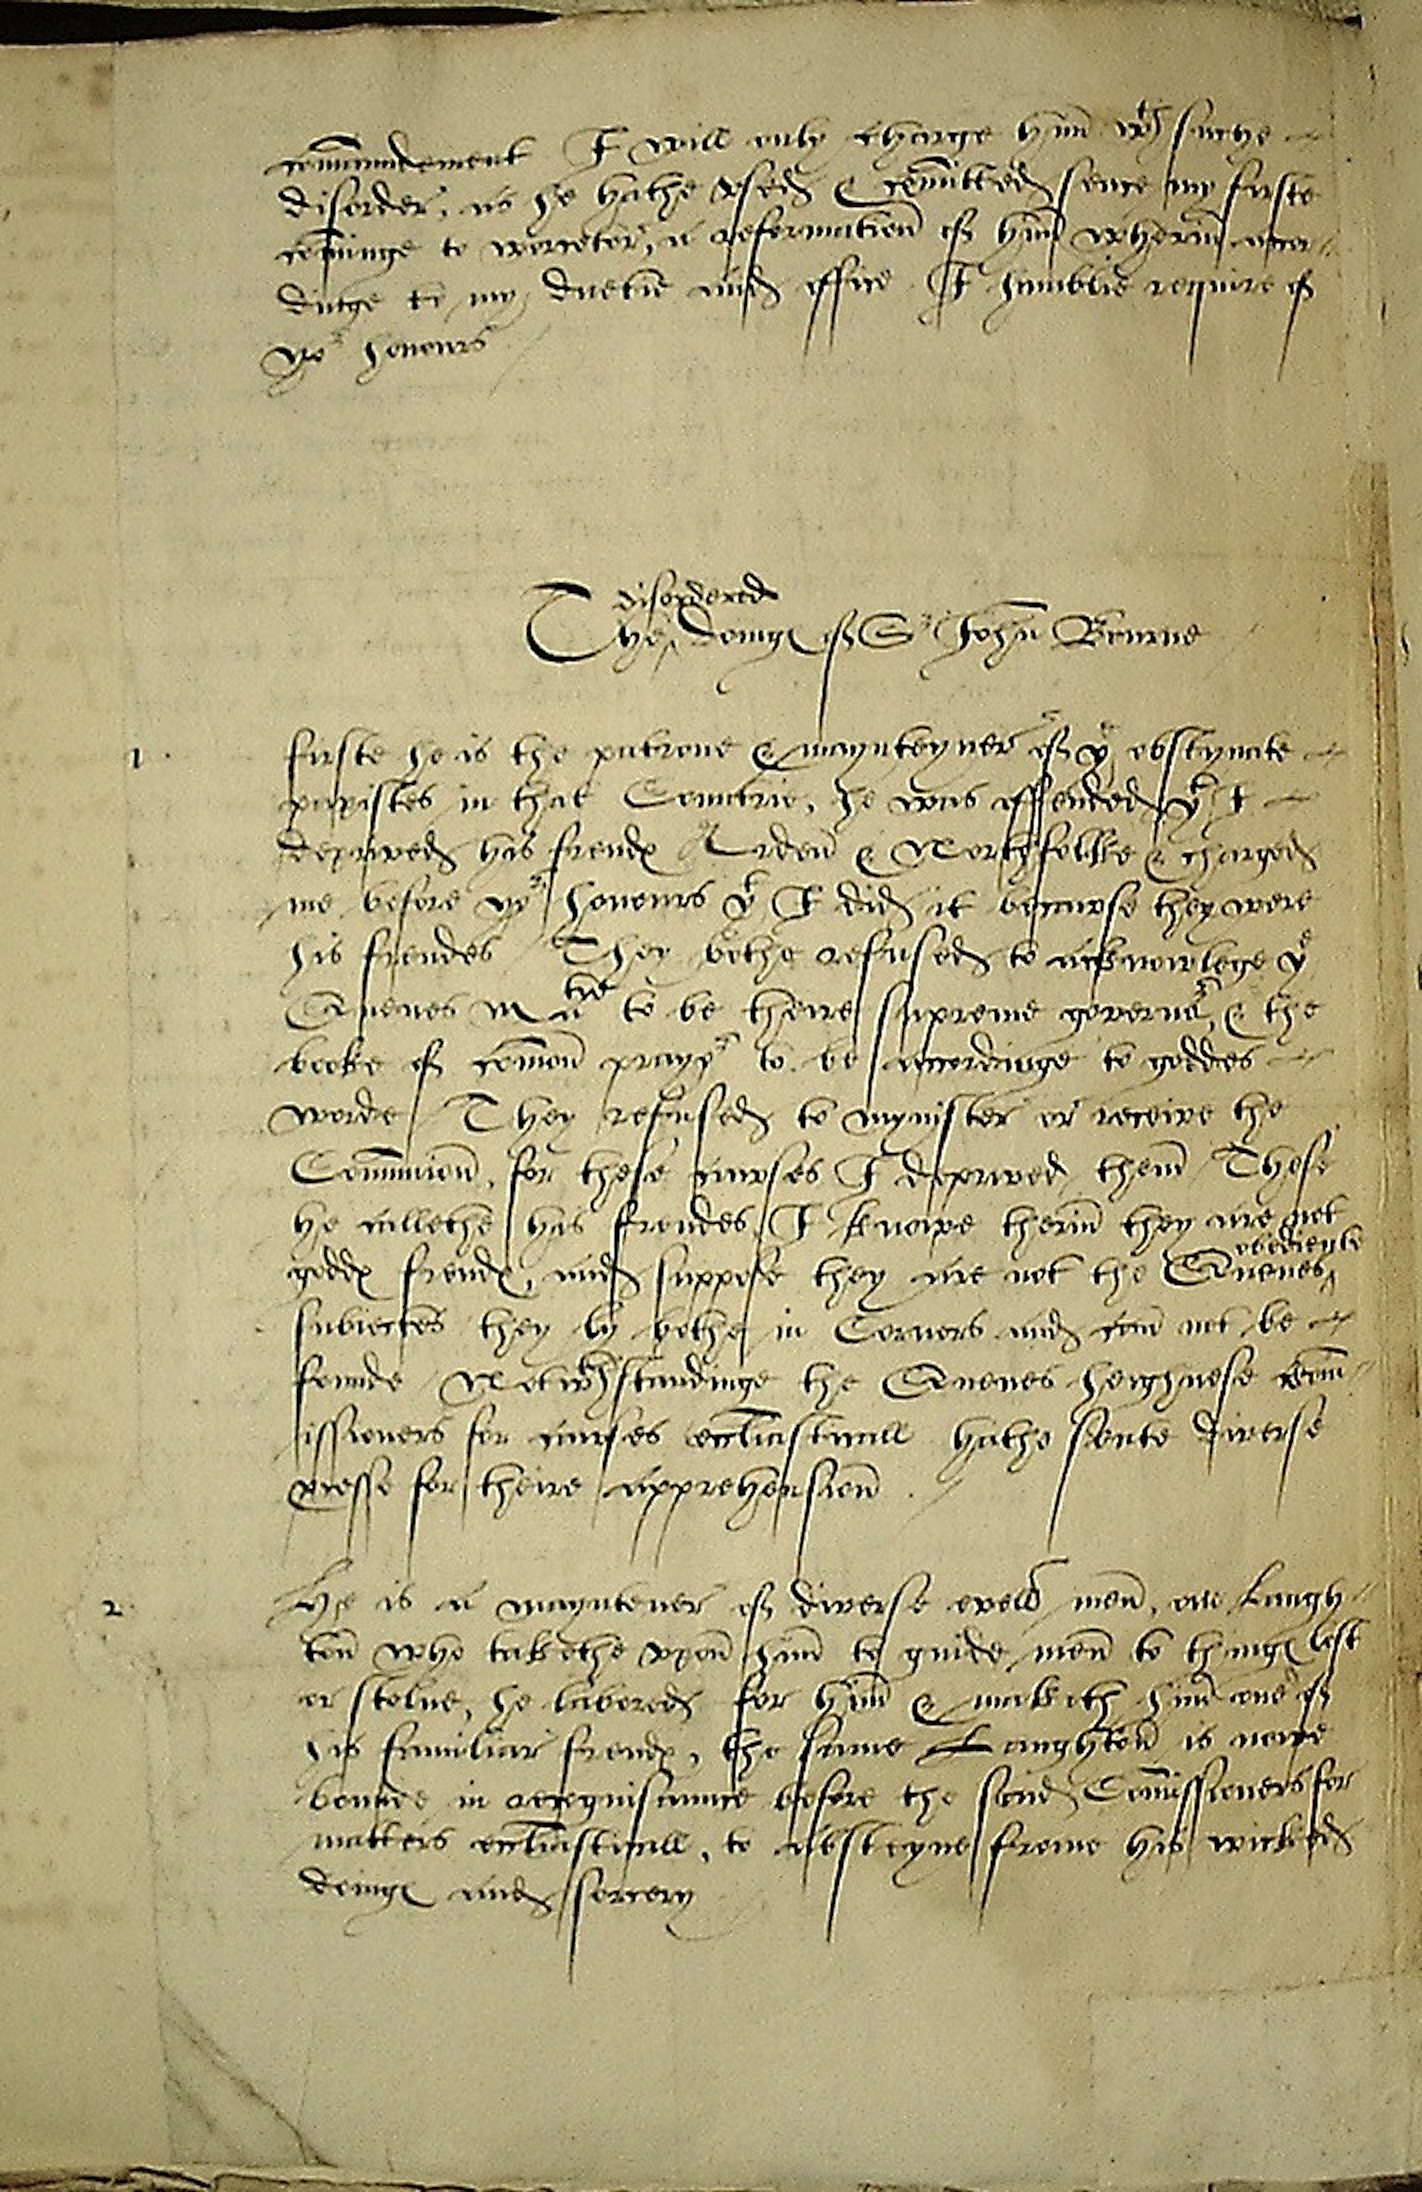 com̄andement I will only charge him wth suche
disorder, as he hathe vsed & com̄itted sence my firste
com̄inge to worceter, a reformation of him wherin accor-
dinge to my duetie and office I humblie require of
yor honours
disordered
The ^ doings of Sr John Bourne
1. firste he is the patrone & maynteyner of ye obstynate
papistes in that Countrie, he was offended yt I
deprived his frends Arden & Northfolke & charged
me before yor honours yt I did it because they were
his frendes They bothe refused to acknowlege ye
Quenes Matie to be theire supreme governor, & the
booke of com̄on prayer to be accordinge to goddes
worde They refused to mynister or receive the
Com̄union, for these causes I deprived them These
he callethe his frendes, I knowe therin they are not
obediente
godds frends, and suppose they are not the Quenes ^
subiectes they ly bothe in Corners and can not be
founde Notwthstandinge the Quenes heighnese com̄-
issioners for causes eccl̄iasticall hathe sente diverse
for theire apprehension.
2. He is a mayntener of diverse evell men, one Laugh-
ton who takethe vpon him to guide men to things lost
or stolne, he labored for him & maketh him one of
his familiar frends, the same Laughton is nowe
bounde in recognisaunce before the said Com̄issioners for
matters eccl̄iasticall, to absteyne frome his wicked
doings and sorcery